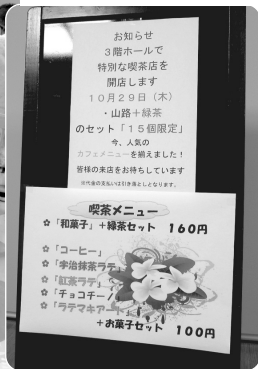 お知らせ
３階ホールで
特別な喫茶店を
開店します
１０月２９日（木）
・山路＋緑茶
のセット「１５個限定」
今、人気の
カフェメニューを揃えました！
皆様の来店をお待ちしています
※代金の支払いは引き落としとなります。
喫茶メニュー
✿「和菓子」＋緑茶セット　160円
✿「コーヒー」
✿「宇治抹茶ラテ」
✿「紅茶ラテ」
✿「チョコチー
✿「ラテマキアート」
＋お菓子セット　100円